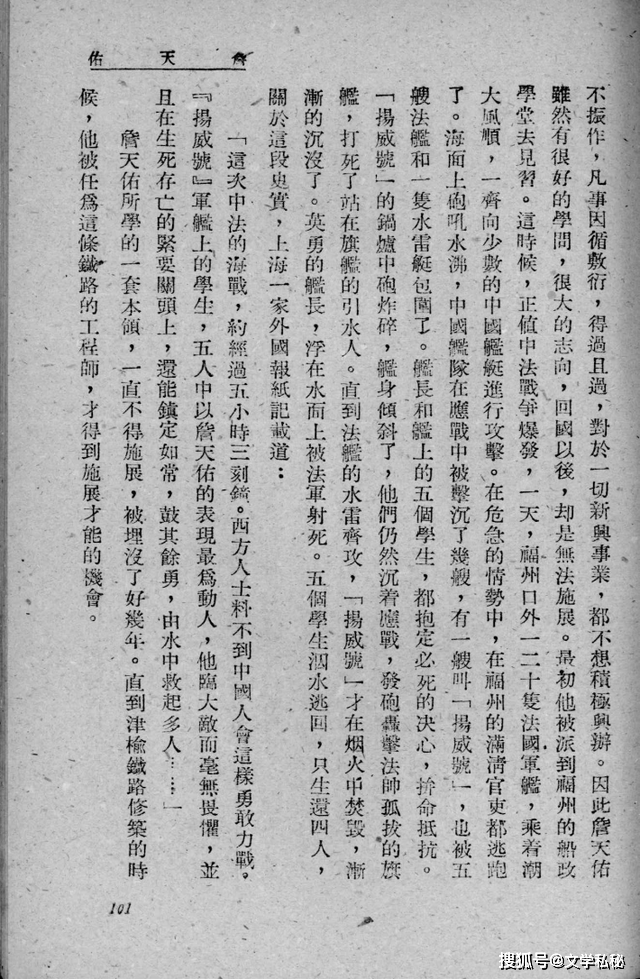 詹天佑
不振作，凡事因循敷衍，得過且過，對於一切新興事業，都不想積極興辦。因此詹天佑
雖然有很好的學問，很大的志向，回國以後，却是無法施展。最初他被派到福州的船政
學堂去見習。這時候，正値中法戰爭爆發，一天，福州口外一二十隻法國軍艦，乘着潮
大風順，一齊向少數的中國艦艇進行攻擊。在危急的情勢中，在福州的滿淸官吏都逃跑
了。海面上砲吼水沸，中國艦隊在應戰中被擊沉了幾艘，有一艘叫「揚威號」，也被五
艘法艦和一隻水雷艇包圍了。艦長和艦上的五個學生，都抱定必死的决心，拚命抵抗。
「揚威號」的鍋爐中砲炸碎，艦身傾斜了，他們仍然沉着應戰，發砲轟擊法帥孤拔的旗
艦，打死了站在旗艦的引水人。直到法艦的水雷齊攻，「揚威號」才在烟火中焚毀，漸
漸的沉沒了。英勇的艦長，浮在水面上被法軍射死。五個學生泅水逃回，只生還四人，
關於這段史實，上海一家外國報紙記載道：
「這次中法的海戰，約經過五小時三刻鐘。西方人士料不到中國人會這樣勇敢力戰。
『揚威號』軍艦上的學生，五人中以詹天佑的表現最爲動人，他臨大敵而毫無畏懼，並
且在生死存亡的緊要關頭上，還能鎮定如常，鼓其餘勇，由水中救起多人……」
詹天佑所學的一套本領，一直不得施展，被埋沒了好幾年。直到津楡鐵路修築的時
候，他被任爲這條鐵路的工程師，才得到施展才能的機會。
101
搜狐号@文学私秘